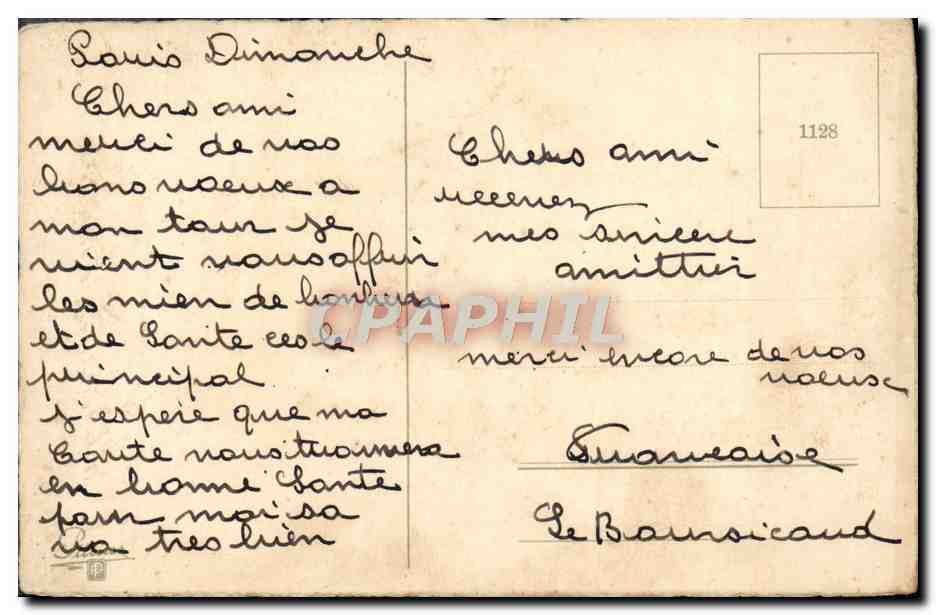 Paris Dimanche
Chers ami
merci de vos
bons voeux a
mon tour je
vient vous offrir
les mien de bonheur
et de Sante ces le
principal
j'espere que ma
Carte vous truvera
en bonne Sante
pour moi sa
va tres bien
1128
Chers ami
recevez
mes sincere
amittier
merci encore de vos
voeux
Francaise
Le Boursicaud
CPAPHIL